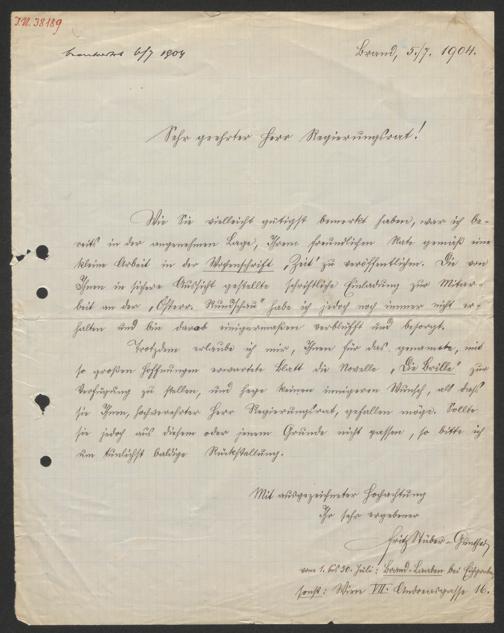 I.N. 38189
beantwortet 6/7 1904
Brand, 5./7. 1904.
Sehr geehrter Herr Regierungsrat!
Wie Sie vielleicht gütigst bemerkt haben, war ich be-
reits in der angenehmen Lage, Ihrem freundlichen Rate gemäß eine
kleine Arbeit in der Wochenschrift „Zeit" zu veröffentlichen. Die von
Ihnen in sichere Aussicht gestellte schriftliche Einladung zur Mitar-
beit an der „Österr. Rundschau" habe ich jedoch noch immer nicht er-
halten und bin darob einigermaßen verblüfft und besorgt.
Trotzdem erlaube ich mir, Ihnen für das genannte, mit
so großen Hoffnungen erwartete Blatt die Novelle „Die Brille" zur
Verfügung zu stellen, und hege keinen innigeren Wunsch, als daß
sie Ihnen, hochverehrter Herr Regierungsrat, gefallen möge. Sollte
sie jedoch aus diesem oder jenem Grunde nicht passen, so bitte ich
um tunlichst baldige Rückstellung.
Mit ausgezeichneter Hochachtung
Ihr sehr ergebener
Fritz Stüber-Gunther
vom 1. bis 30. Juli: Brand-Laaben bei
sonst: Wien VII: Andreasgasse 16.